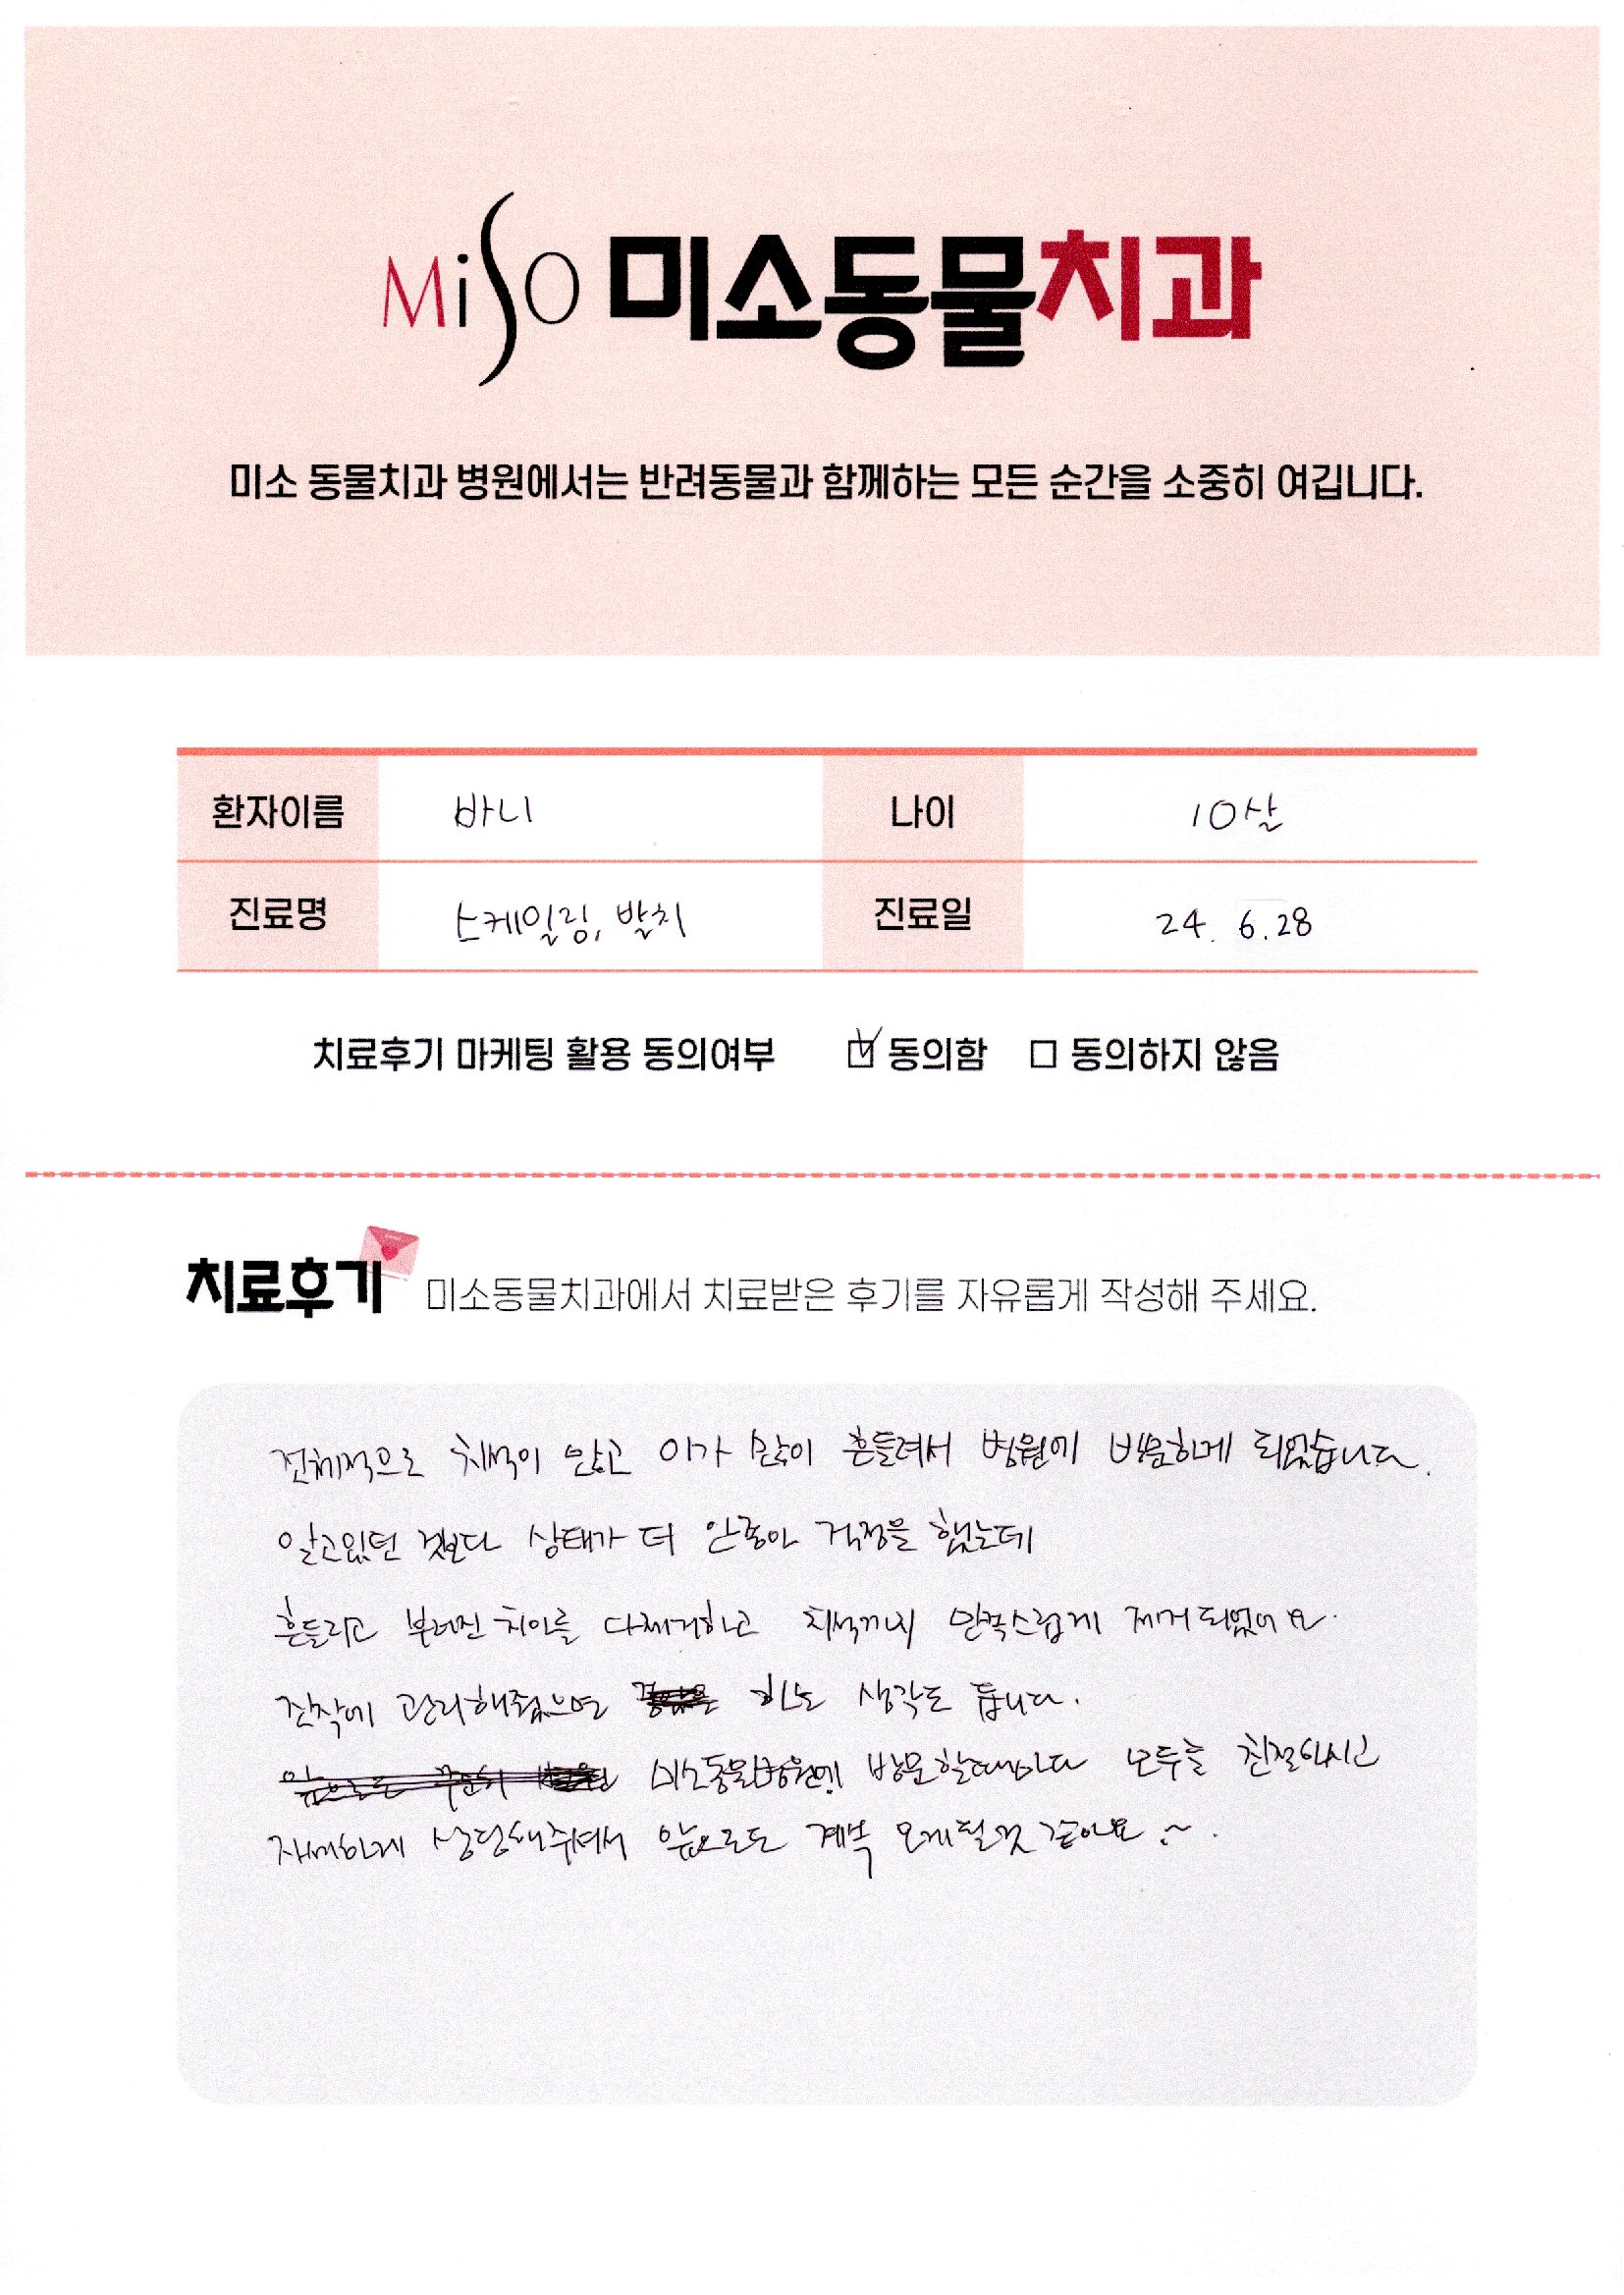 MiSO 미소동물치과
미소 동물치과 병원에서는 반려동물과 함께하는 모든 순간을 소중히 여깁니다.
환자이름 바니 나이 10살
진료명 스케일링, 발치 진료일 24. 6. 28
치료후기 마케팅 활용 동의여부 ☑ 동의함 ☐ 동의하지 않음
치료후기 미소동물치과에서 치료받은 후기를 자유롭게 작성해 주세요.
전체적으로 치석이 많고 이가 많이 흔들려서 병원에 방문하게 되었습니다.
알고있던 것보다 상태가 더 안좋아 걱정을 했는데
흔들리고 부러진 치아를 다제거하고 치석까지 만족스럽게 제거되었어요.
진작에 관리해줬으면 하는 생각도 듭니다.
미소동물병원에 방문할때마다 모두들 친절하시고
자세하게 상담해주셔서 앞으로도 계속 오게될것 같아요~.